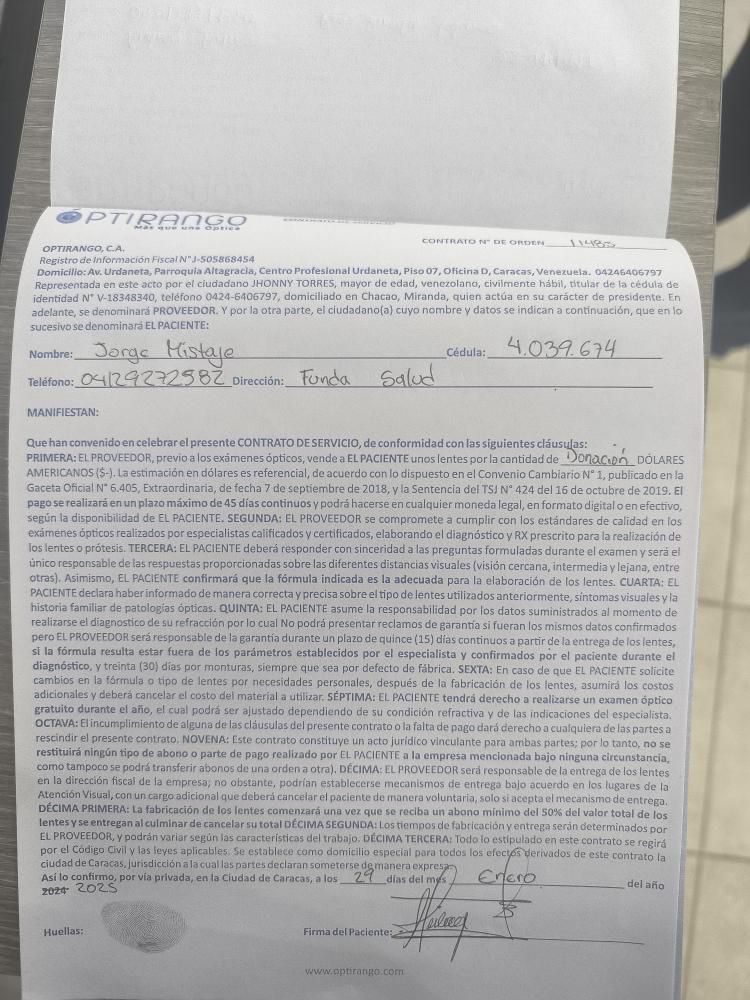 OPTIRANGO
Más que una Óptica
CONTRATO DE SERVICIO
CONTRATO N° DE ORDEN 11485
OPTIRANGO, C.A.
Registro de Información Fiscal N°J-505868454
Domicilio: Av. Urdaneta, Parroquia Altagracia, Centro Profesional Urdaneta, Piso 07, Oficina D, Caracas, Venezuela. 04246406797
Representada en este acto por el ciudadano JHONNY TORRES, mayor de edad, venezolano, civilmente hábil, titular de la cédula de
identidad N° V-18348340, teléfono 0424-6406797, domiciliado en Chacao, Miranda, quien actúa en su carácter de presidente. En
adelante, se denominará PROVEEDOR. Y por la otra parte, el ciudadano(a) cuyo nombre y datos se indican a continuación, que en lo
sucesivo se denominará EL PACIENTE:
Nombre: Jorge Mistaje Cédula: 4.039.674
Teléfono: 04129272582 Dirección: Funda Salud
MANIFIESTAN:
Que han convenido en celebrar el presente CONTRATO DE SERVICIO, de conformidad con las siguientes cláusulas:
PRIMERA: EL PROVEEDOR, previo a los exámenes ópticos, vende a EL PACIENTE unos lentes por la cantidad de Donación DÓLARES
AMERICANOS ($-). La estimación en dólares es referencial, de acuerdo con lo dispuesto en el Convenio Cambiario N° 1, publicado en la
Gaceta Oficial N° 6.405, Extraordinaria, de fecha 7 de septiembre de 2018, y la Sentencia del TSJ N° 424 del 16 de octubre de 2019. El
pago se realizará en un plazo máximo de 45 días continuos y podrá hacerse en cualquier moneda legal, en formato digital o en efectivo,
según la disponibilidad de EL PACIENTE. SEGUNDA: EL PROVEEDOR se compromete a cumplir con los estándares de calidad en los
exámenes ópticos realizados por especialistas calificados y certificados, elaborando el diagnóstico y RX prescrito para la realización de
los lentes o prótesis. TERCERA: EL PACIENTE deberá responder con sinceridad a las preguntas formuladas durante el examen y será el
único responsable de las respuestas proporcionadas sobre las diferentes distancias visuales (visión cercana, intermedia y lejana, entre
otras). Asimismo, EL PACIENTE confirmará que la fórmula indicada es la adecuada para la elaboración de los lentes. CUARTA: EL
PACIENTE declara haber informado de manera correcta y precisa sobre el tipo de lentes utilizados anteriormente, síntomas visuales y la
historia familiar de patologías ópticas. QUINTA: EL PACIENTE asume la responsabilidad por los datos suministrados al momento de
realizarse el diagnostico de su refracción por lo cual No podrá presentar reclamos de garantía si fueran los mismos datos confirmados
pero EL PROVEEDOR será responsable de la garantía durante un plazo de quince (15) días continuos a partir de la entrega de los lentes,
si la fórmula resulta estar fuera de los parámetros establecidos por el especialista y confirmados por el paciente durante el
diagnóstico, y treinta (30) días por monturas, siempre que sea por defecto de fábrica. SEXTA: En caso de que EL PACIENTE solicite
cambios en la fórmula o tipo de lentes por necesidades personales, después de la fabricación de los lentes, asumirá los costos
adicionales y deberá cancelar el costo del material a utilizar. SÉPTIMA: EL PACIENTE tendrá derecho a realizarse un examen óptico
gratuito durante el año, el cual podrá ser ajustado dependiendo de su condición refractiva y de las indicaciones del especialista.
OCTAVA: El incumplimiento de alguna de las cláusulas del presente contrato o la falta de pago dará derecho a cualquiera de las partes a
rescindir el presente contrato. NOVENA: Este contrato constituye un acto jurídico vinculante para ambas partes; por lo tanto, no se
restituirá ningún tipo de abono o parte de pago realizado por EL PACIENTE a la empresa mencionada bajo ninguna circunstancia,
como tampoco se podrá transferir abonos de una orden a otra). DÉCIMA: EL PROVEEDOR será responsable de la entrega de los lentes
en la dirección fiscal de la empresa; no obstante, podrían establecerse mecanismos de entrega bajo acuerdo en los lugares de la
Atención Visual, con un cargo adicional que deberá cancelar el paciente de manera voluntaria, solo si acepta el mecanismo de entrega.
DÉCIMA PRIMERA: La fabricación de los lentes comenzará una vez que se reciba un abono mínimo del 50% del valor total de los
lentes y se entregan al culminar de cancelar su total DÉCIMA SEGUNDA: Los tiempos de fabricación y entrega serán determinados por
EL PROVEEDOR, y podrán variar según las características del trabajo. DÉCIMA TERCERA: Todo lo estipulado en este contrato se regirá
por el Código Civil y las leyes aplicables. Se establece como domicilio especial para todos los efectos derivados de este contrato la
ciudad de Caracas, jurisdicción a la cual las partes declaran someterse de manera expresa.
Así lo confirmo, por vía privada, en la Ciudad de Caracas, a los 29 días del mes Enero del año
2024 2025
Huellas: Firma del Paciente:
www.optirango.com